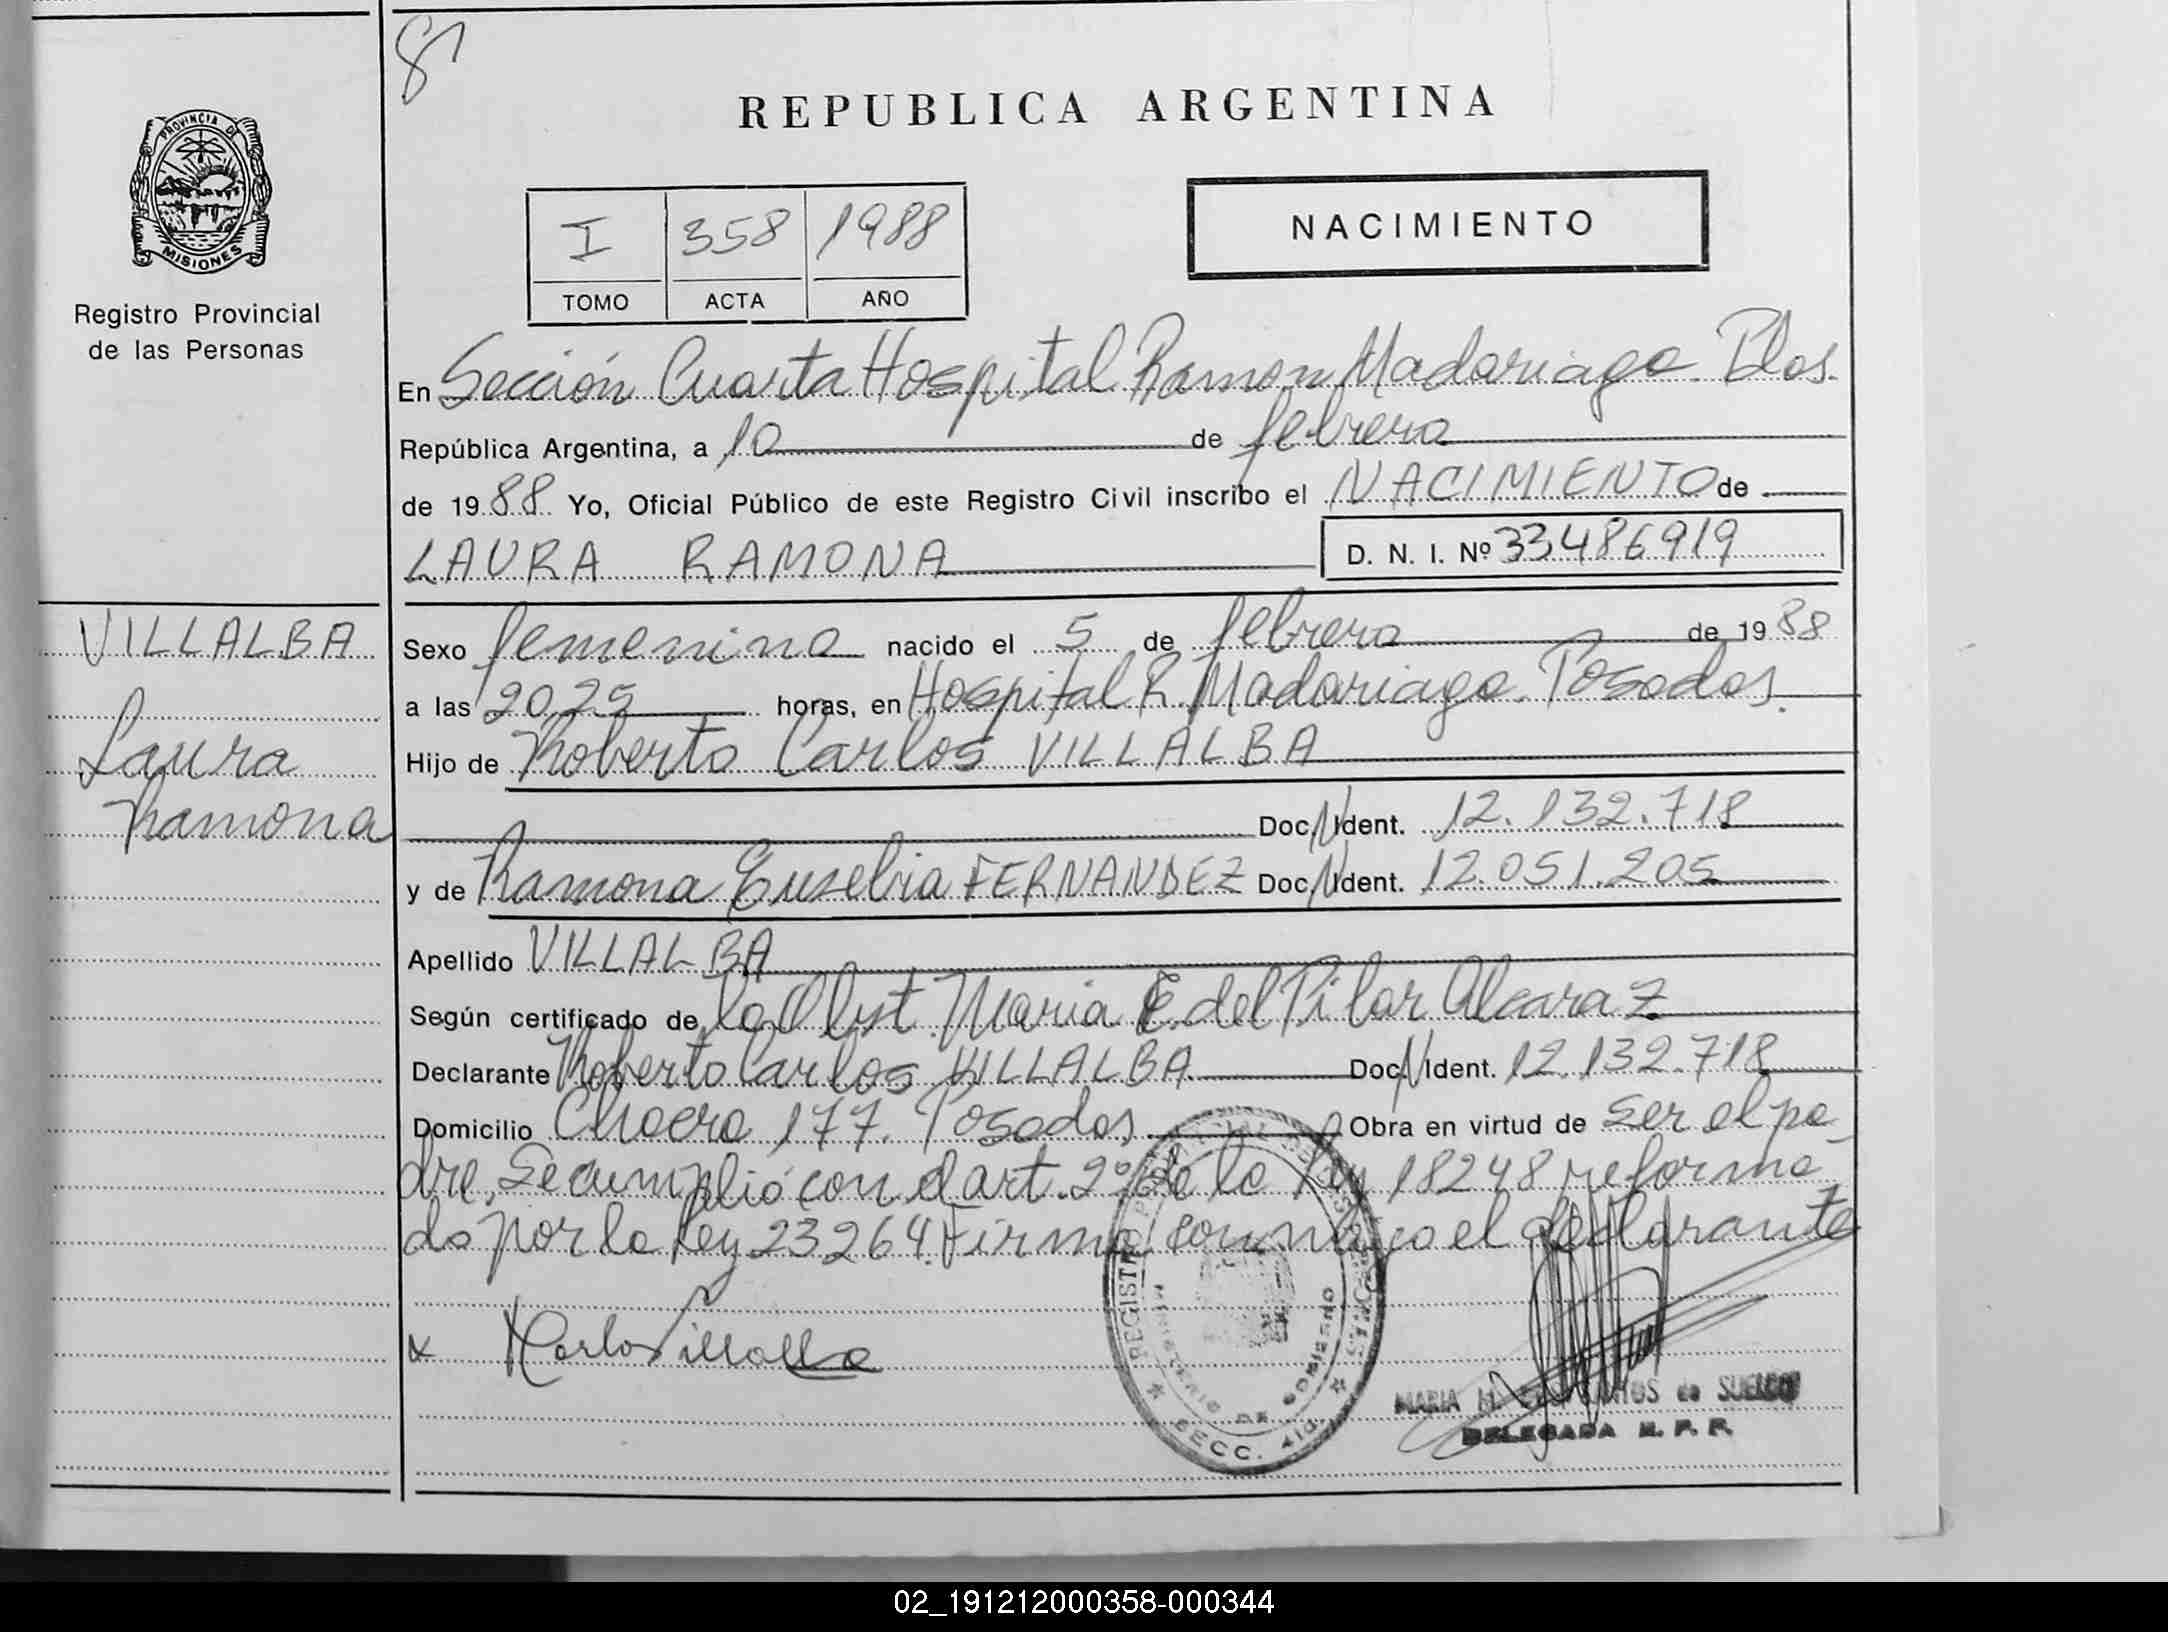 8
PROVINCIA DE
MISIONES
Registro Provincial
de las Personas
VILLALBA
Laura
Ramona
REPUBLICA ARGENTINA
I 358 1988
TOMO ACTA AÑO
NACIMIENTO
En Sección Cuarta Hospital Ramon Madariaga. Pdas.
República Argentina, a 10 de febrero
de 1988 Yo, Oficial Público de este Registro Civil inscribo el NACIMIENTO de
LAURA RAMONA
D. N. I. Nº 33486919
Sexo femenino nacido el 5 de febrero de 1988
a las 20,25 horas, en Hospital R. Madariaga. Posadas.
Hijo de Roberto Carlos VILLALBA
Doc. N Ident. 12.132.718
y de Ramona Eusebia FERNANDEZ Doc. N Ident. 12.051.205
Apellido VILLALBA
Según certificado de la Obst. Maria E. del Pilar Alcaraz
Declarante Roberto Carlos VILLALBA Doc. N Ident. 12.132.718
Domicilio 177. Posadas Obra en virtud de ser el pa-
dre, Se cumplió con el art. 2º de la Ley 18248 reforma
do por la Ley 23264. Firma conmigo el declarante
x Carlos Villalba
REGISTRO
MINISTERIO DE GOBIERNO
SECC. 4ta.
MARIA de SUELDO
DELEGADA R. P. P.
02_191212000358-000344